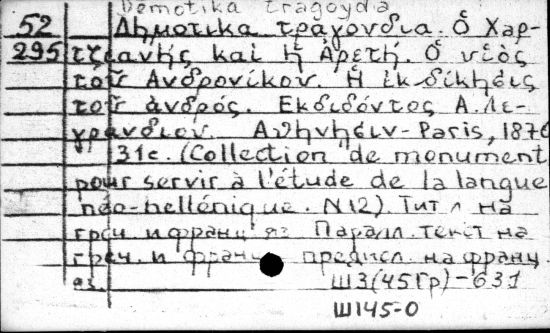 Demotika tragoydia
52 Δημοτικα τραγουδια. Ὁ Χαρ-
295 τζιανῆς καὶ ἡ Ἀρετή. Ὁ υἱὸς
τοῦ Ἀνδρονίκου. Ἡ ἐκδίκησις
τοῦ ἀνδρός. Ἐκδιδόντος Α. Λε-
γρανδίου. Ἀθήνησιν - Paris, 1876
31c. (Collection de monument
pour servir à l'étude de la langue
néo-hellénique. N12). Тит л на
греч и франц яз Паралл. текст на
греч. и франц предисл. на франц.
яз.
Ш3(45Гр)-631
Ш145-0